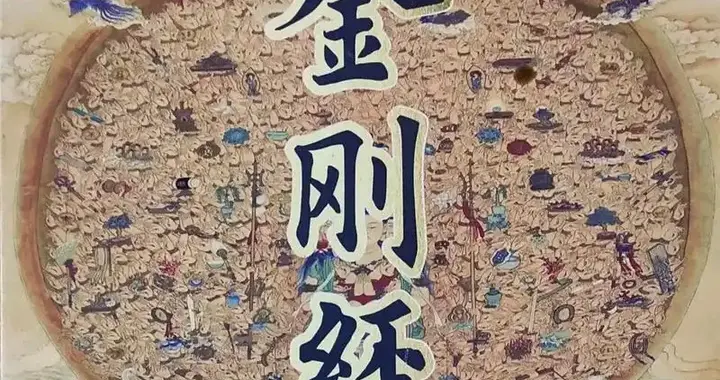 金刚经